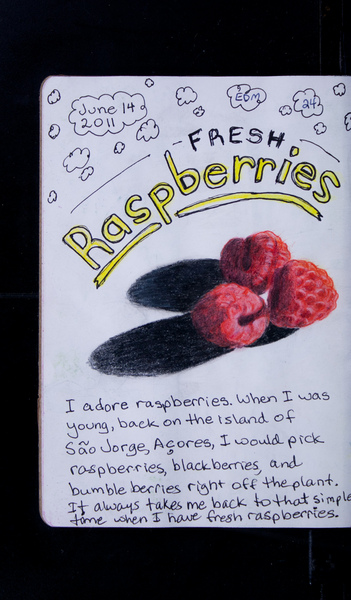 June 14
2011
EDM
24
FRESH
Raspberries
I adore raspberries. When I was
young, back on the island of
São Jorge, Açores, I would pick
raspberries, blackberries, and
bumble berries right off the plant.
It always takes me back to that simple
time when I have fresh raspberries.